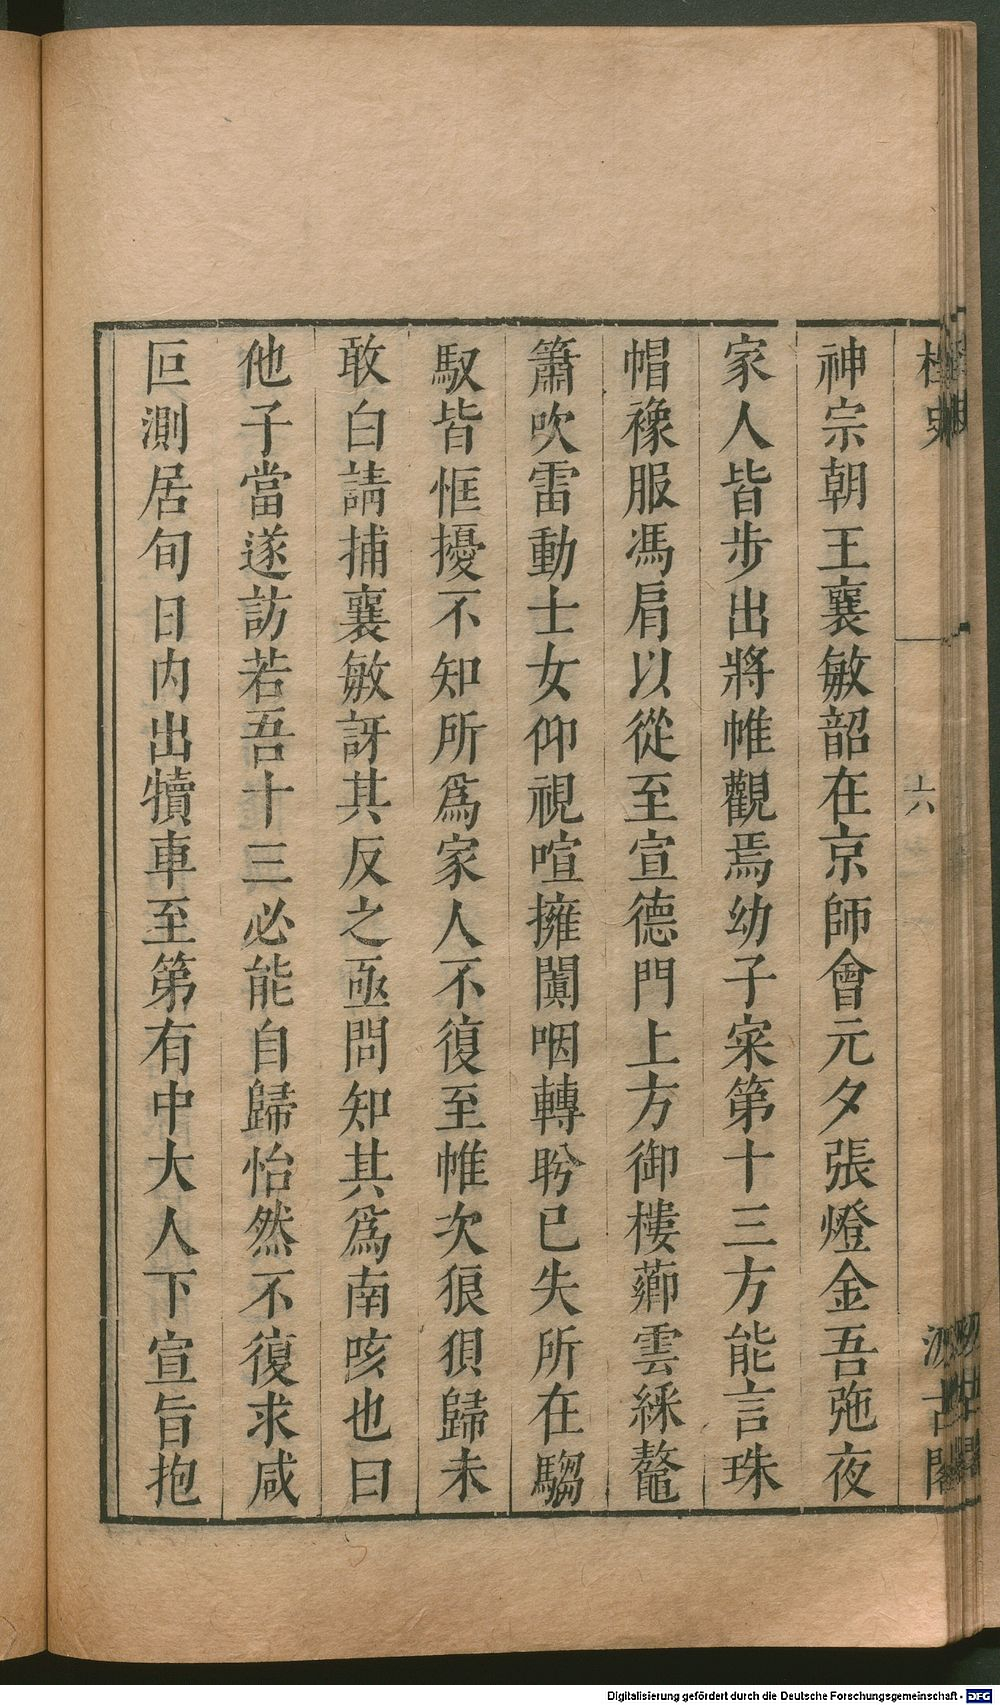 桯史
十六
汲古閣
神宗朝王襄敏韶在京師會元夕張燈金吾弛夜
家人皆步出將帷觀焉幼子寀第十三方能言珠
帽襐服馮肩以從至宣德門上方御樓薌雲綵鼇
簫吹雷動士女仰視喧擁闐咽轉盻已失所在騶
馭皆恇擾不知所爲家人不復至帷次狼狽歸未
敢白請捕襄敏訝其反之亟問知其爲南咳也曰
他子當遂訪若吾十三必能自歸怡然不復求咸
叵測居旬日内出犢車至第有中大人下宣旨抱
Digitalisierung gefördert durch die Deutsche Forschungsgemeinschaft - DFG